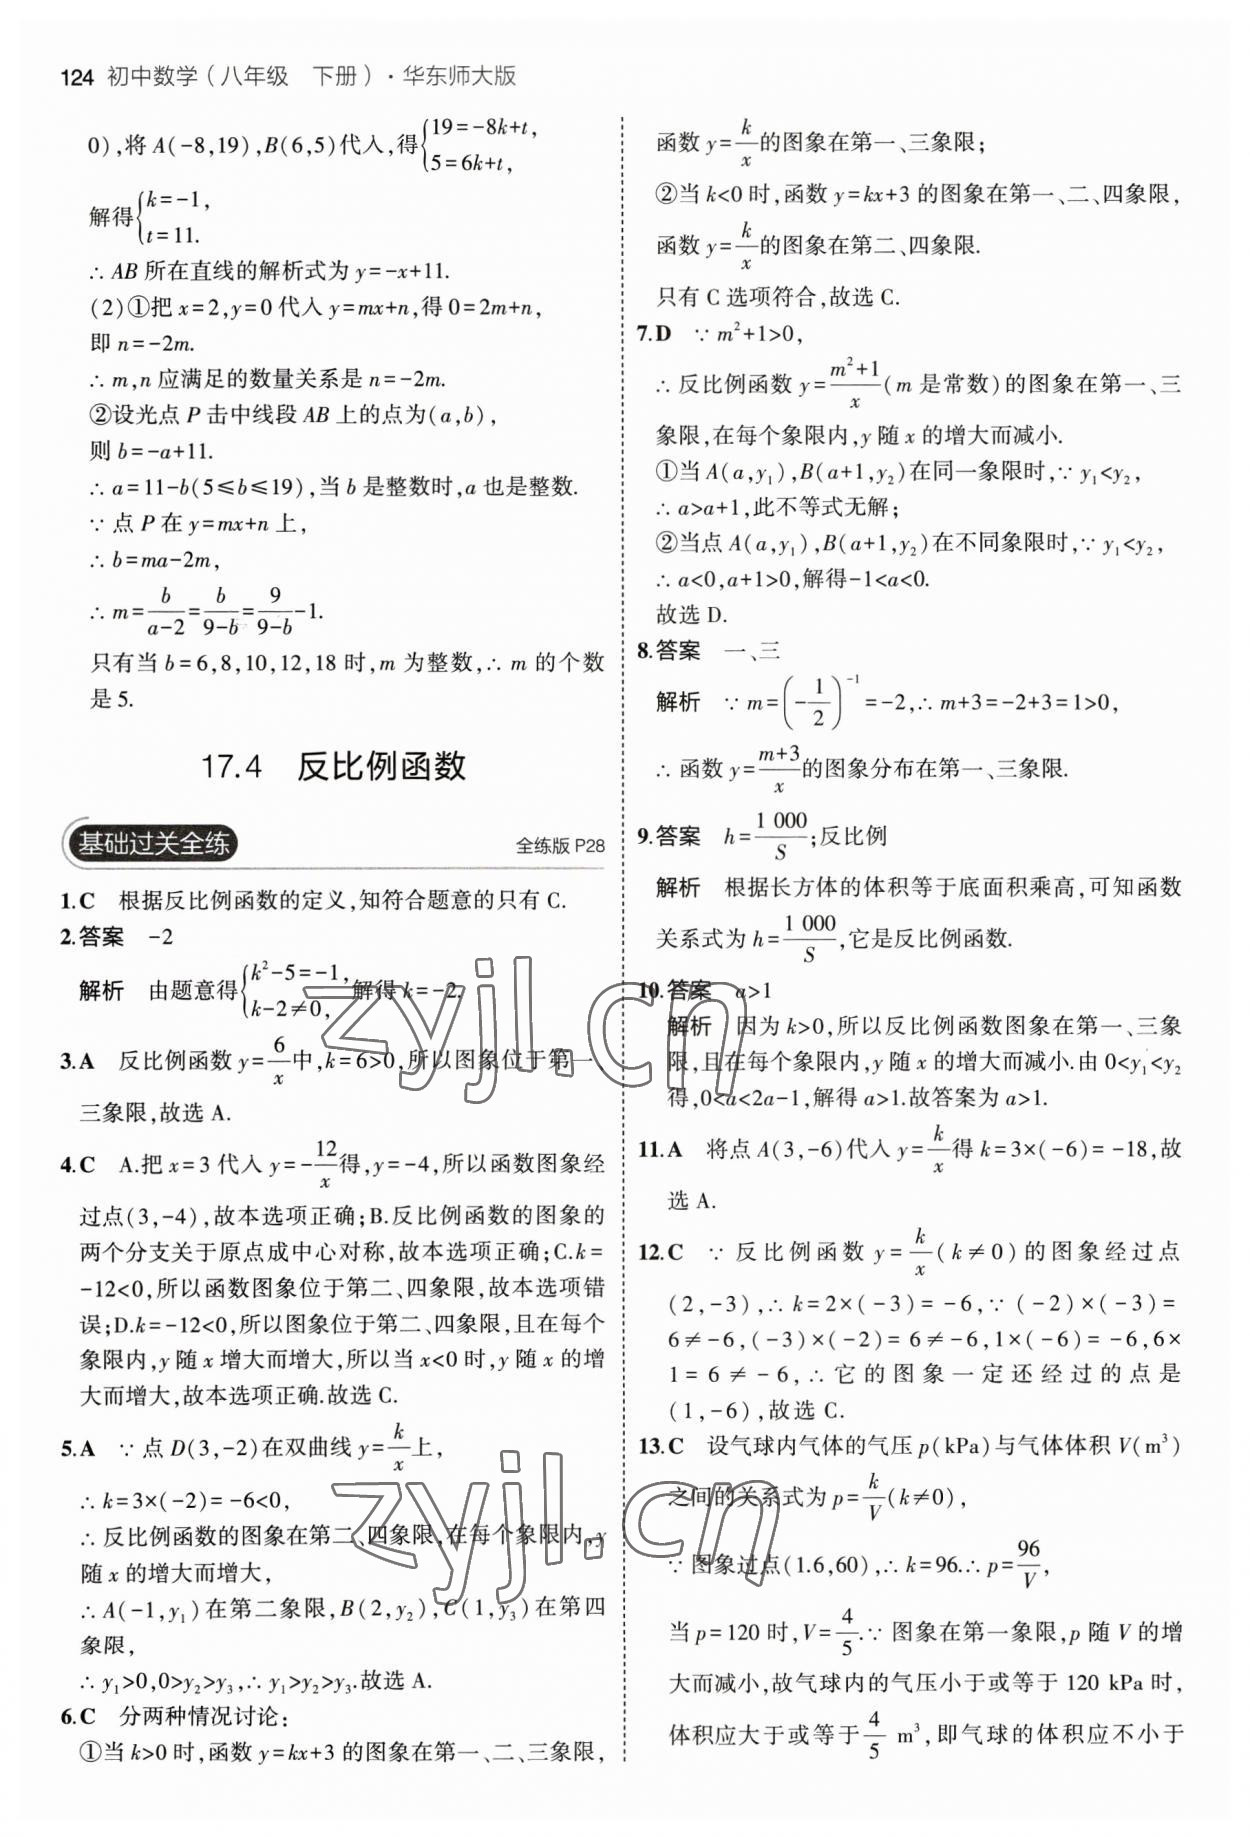 124 初中数学(八年级 下册)·华东师大版
0),将A(-8,19),B(6,5)代入,得{19=-8k+t,
5=6k+t,
解得{k=-1,
t=11.
∴AB所在直线的解析式为y=-x+11.
(2)①把x=2,y=0代入y=mx+n,得0=2m+n,
即n=-2m.
∴m,n应满足的数量关系是n=-2m.
②设光点P击中线段AB上的点为(a,b),
则b=-a+11.
∴a=11-b(5≤b≤19),当b是整数时,a也是整数.
∵点P在y=mx+n上,
∴b=ma-2m,
∴m=b/(a-2)=b/(9-b)=9/(9-b)-1.
只有当b=6,8,10,12,18时,m为整数,∴m的个数
是5.
17.4 反比例函数
基础过关全练 全练版P28
1.C 根据反比例函数的定义,知符合题意的只有C.
2.答案 -2
解析 由题意得{k²-5=-1,
k-2≠0,解得k=-2.
3.A 反比例函数y=6/x中,k=6>0,所以图象位于第一、
三象限,故选A.
4.C A.把x=3代入y=-12/x得,y=-4,所以函数图象经
过点(3,-4),故本选项正确;B.反比例函数的图象的
两个分支关于原点成中心对称,故本选项正确;C.k=
-12<0,所以函数图象位于第二、四象限,故本选项错
误;D.k=-12<0,所以图象位于第二、四象限,且在每个
象限内,y随x增大而增大,所以当x<0时,y随x的增
大而增大,故本选项正确.故选C.
5.A ∵点D(3,-2)在双曲线y=k/x上,
∴k=3×(-2)=-6<0,
∴反比例函数的图象在第二、四象限,在每个象限内,y
随x的增大而增大,
∴A(-1,y₁)在第二象限,B(2,y₂),C(1,y₃)在第四
象限,
∴y₁>0,0>y₂>y₃,∴y₁>y₂>y₃.故选A.
6.C 分两种情况讨论:
①当k>0时,函数y=kx+3的图象在第一、二、三象限,
函数y=k/x的图象在第一、三象限;
②当k<0时,函数y=kx+3的图象在第一、二、四象限,
函数y=k/x的图象在第二、四象限.
只有C选项符合,故选C.
7.D ∵m²+1>0,
∴反比例函数y=(m²+1)/x(m是常数)的图象在第一、三
象限,在每个象限内,y随x的增大而减小.
①当A(a,y₁),B(a+1,y₂)在同一象限时,∵y₁<y₂,
∴a>a+1,此不等式无解;
②当点A(a,y₁),B(a+1,y₂)在不同象限时,∵y₁<y₂,
∴a<0,a+1>0,解得-1<a<0.
故选D.
8.答案 一、三
解析 ∵m=(-1/2)⁻¹=-2,∴m+3=-2+3=1>0,
∴函数y=(m+3)/x的图象分布在第一、三象限.
9.答案 h=1 000/S;反比例
解析 根据长方体的体积等于底面积乘高,可知函数
关系式为h=1 000/S,它是反比例函数.
10.答案 a>1
解析 因为k>0,所以反比例函数图象在第一、三象
限,且在每个象限内,y随x的增大而减小.由0<y₁<y₂
得,0<a<2a-1,解得a>1.故答案为a>1.
11.A 将点A(3,-6)代入y=k/x得k=3×(-6)=-18,故
选A.
12.C ∵反比例函数y=k/x(k≠0)的图象经过点
(2,-3),∴k=2×(-3)=-6,∵(-2)×(-3)=
6≠-6,(-3)×(-2)=6≠-6,1×(-6)=-6,6×
1=6≠-6,∴它的图象一定还经过的点是
(1,-6),故选C.
13.C 设气球内气体的气压p(kPa)与气体体积V(m³)
之间的关系式为p=k/V(k≠0),
∵图象过点(1.6,60),∴k=96.∴p=96/V,
当p=120时,V=4/5.∵图象在第一象限,p随V的增
大而减小,故气球内的气压小于或等于120 kPa时,
体积应大于或等于4/5 m³,即气球的体积应不小于
zyjl.cn
zyjl.cn